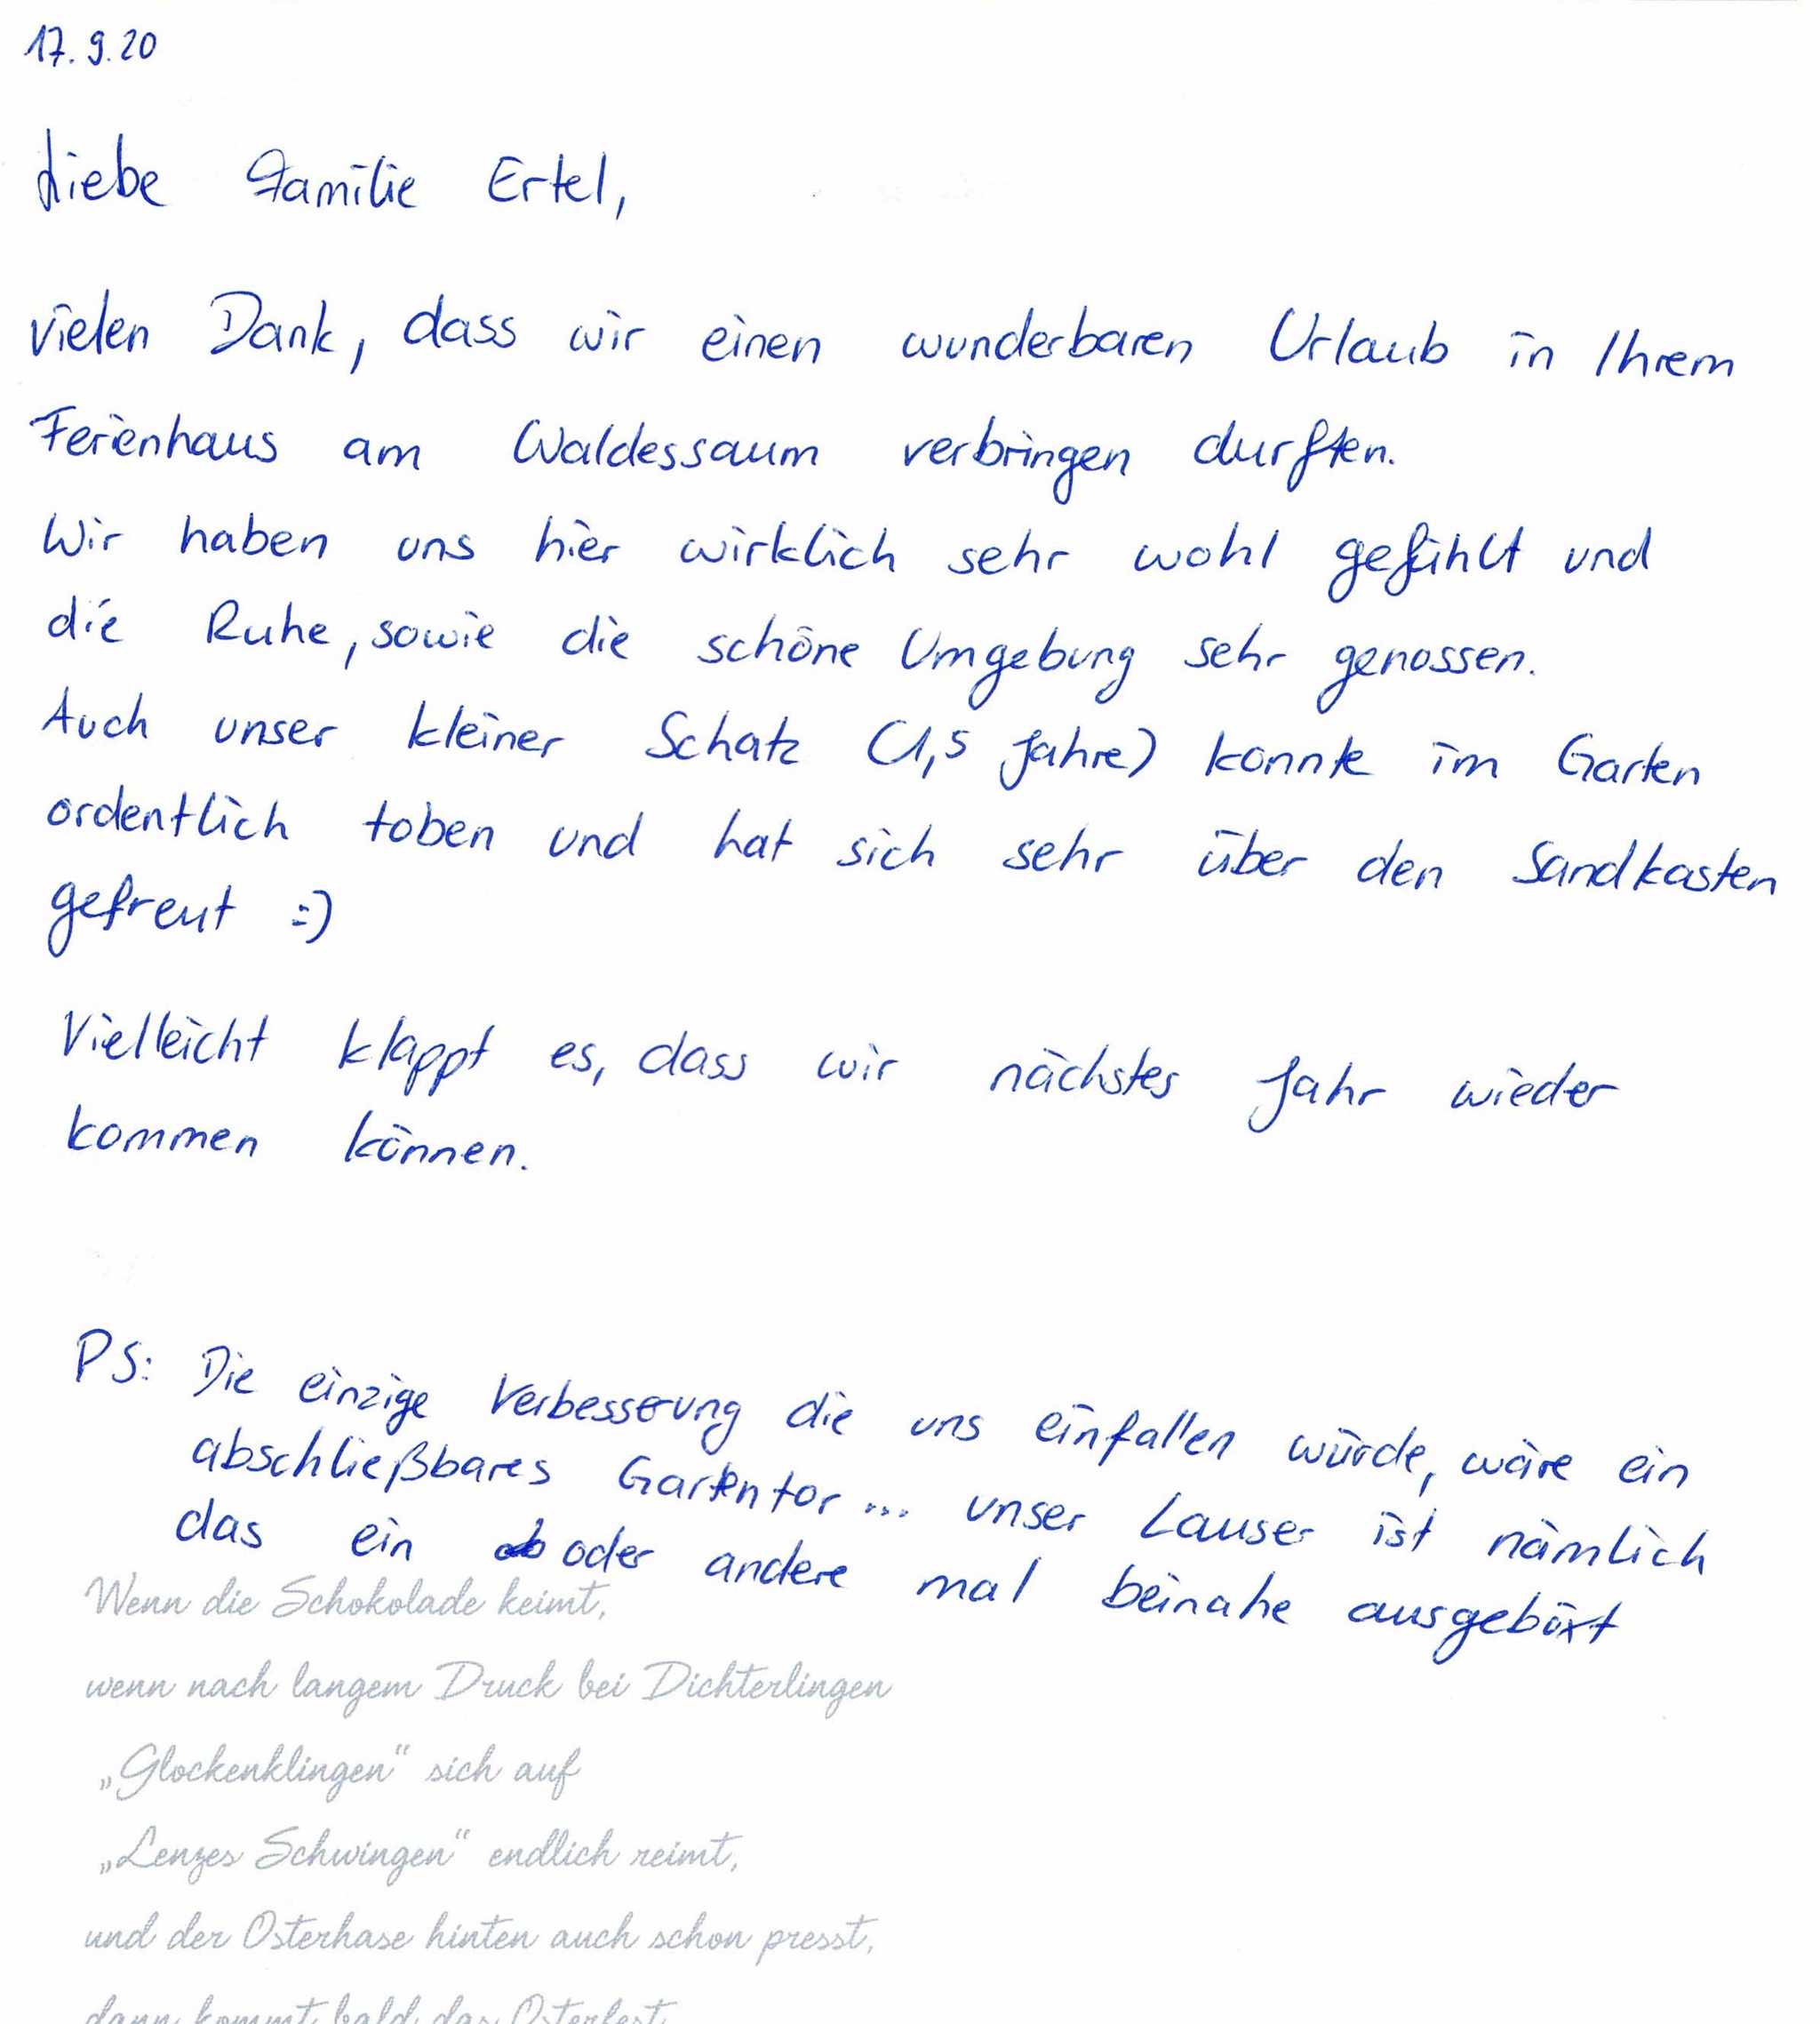 17.9.20
Liebe Familie Ertel,
vielen Dank, dass wir einen wunderbaren Urlaub in Ihrem
Ferienhaus am Waldessaum verbringen durften.
Wir haben uns hier wirklich sehr wohl gefühlt und
die Ruhe, sowie die schöne Umgebung sehr genossen.
Auch unser kleiner Schatz (1,5 Jahre) konnte im Garten
ordentlich toben und hat sich sehr über den Sandkasten
gefreut :)
Vielleicht klappt es, dass wir nächstes Jahr wieder
kommen können.
PS: Die einzige Verbesserung die uns einfallen würde, wäre ein
abschließbares Gartentor... unser Lauser ist nämlich
das ein oder andere mal beinahe ausgebüxt
Wenn die Schokolade keimt,
wenn nach langem Druck bei Dichterlingen
„Glockenklingen“ sich auf
„Lenzes Schwingen“ endlich reimt,
und der Osterhase hinten auch schon presst,
dann kommt bald das Osterfest